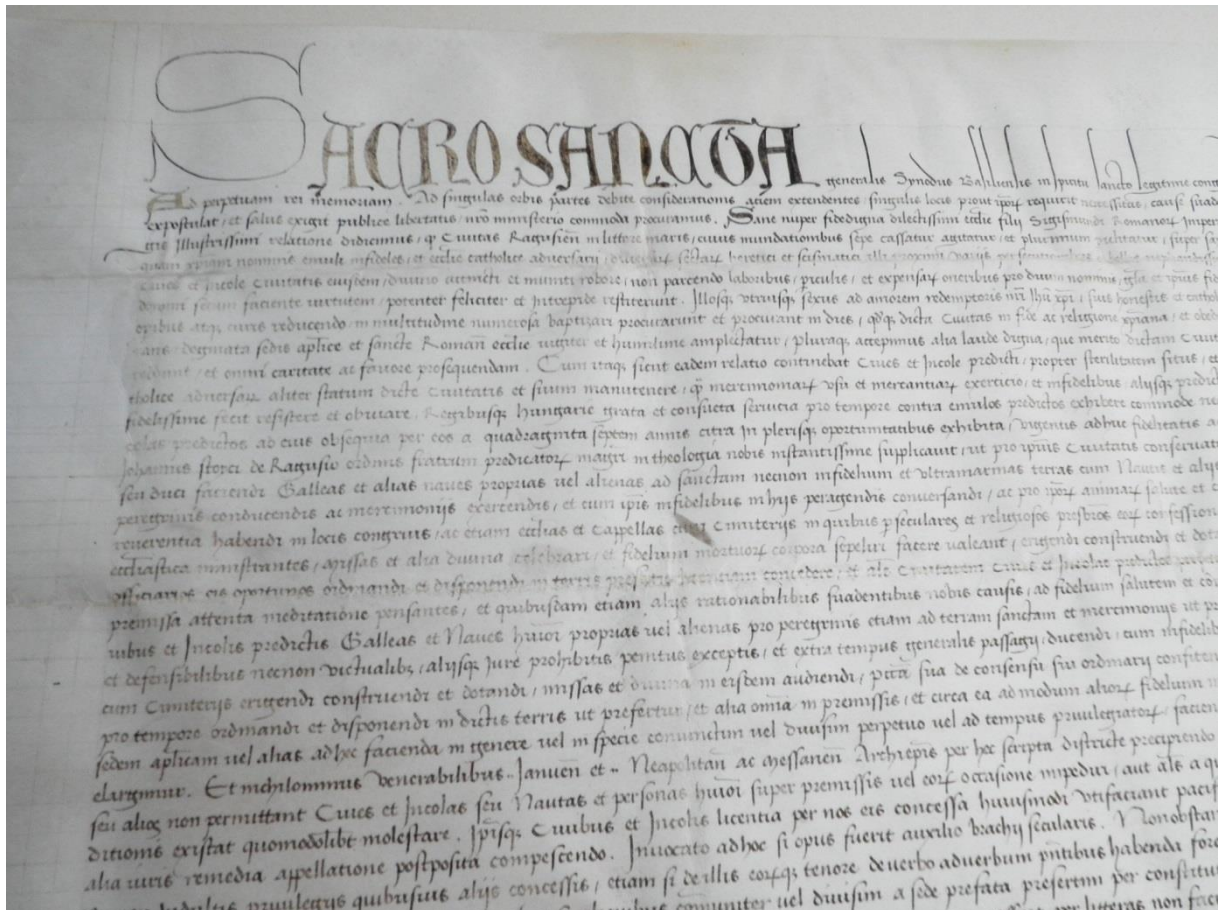 SACROSANCTA generalis Synodus Basiliensis in spiritu sancto legitime cong
Ad perpetuam rei memoriam. Ad singulas orbis partes debite considerationis aciem extendentes, singulis locis prout ipoꝝ requirit necessitas, cause suad
expostulat, et salus exigit publice libertatis, nro ministerio commoda procuramus. Sane nuper fidedigna dilectissimi ecclie filij Sigismundi Romanoꝝ Imper
Illustrissimi relatione didicimus, ꝙ Civitas Ragusien in littore maris, cuius inundationibus sepe cassatur agitatur, et plurimum, super
quam xpiani nominis emuli infideles, et ecclie catholice adversarij, sectaꝝ heretici et scismatici illi proximi varijs
Cives et Incole Civitatis eiusdem, divino accincti et muniti robore, non parcendo laboribus, periculis, et expensaꝝ oneribus pro divini nominis, gla et ipius fid
domini secum faciente virtutem, potenter feliciter et intrepide restiterunt. Illosqꝫ utriusqꝫ sexus ad amorem redemptoris nri Ihu xpi, suis honestis et cathol
opibus atqꝫ curis reducendo, in multitudine numerosa baptizari procurarunt et procurant in dies, qdqꝫ dicta Civitas in fide ac religione xpiana, et obed
dogmata sedis aplice et sancte Roman ecclie iugiter et humilime amplectatur, pluraqꝫ accepimus alia laude digna, que merito dictam Civit
et omni caritate ac favore prosequendam. Cum itaqꝫ sicut eadem relatio continebat Cives et Incole predicti, propter sterilitatem situs, et
tholice adversaꝝ aliter statum dicte Civitatis et suum manutenere, ꝙ mercimoniaꝝ usu et mercantiaꝝ exercicio, et infidelibus, alijsqꝫ predict
fidelissime fecit resistere et obviare, Regibusqꝫ Hungarie grata et consueta servitia pro tempore contra emulos predictos exhibere commode ne
colas predictos ad eius obsequia per eos a quadraginta septem annis citra in plerisqꝫ oportunitatibus exhibita, vigentis adhuc fidelitatis a
Johannis storci de Ragusio ordinis fratrum predicatoꝝ magri in theologia nobis instantissime supplicavit, ut pro ipius Civitatis conservat
seu duci faciendi Galleas et alias naves proprias vel alienas ad sanctam necnon infidelium et ultramarinas terras cum Nautis et alij
peregrinis conducendis ac mercimonijs exercendis, et cum ipis infidelibus in hijs peragendis conversandi, ac pro ipoꝝ animaꝝ salute et
reverentia habendi in locis congruis, ac etiam ecclias et Cappellas cum Cimiterijs in quibus per seculares et religiosos presbros eoꝝ confession
ecclastica ministrantes, missas et alia divina celebrari, et fidelium mortuoꝝ corpora sepeliri facere valeant, erigendi construendi et dota
officiarios eis oportunos ordinandi et disponendi in terris licentiam concedere, et Cives et Incolas predictos
premissa attenta meditatione pensantes, et quibusdam etiam alijs rationabilibus suadentibus nobis causis, ad fidelium salutem et co
vibus et Incolis predictis Galleas et Naves huioi proprias vel alienas pro peregrinis etiam ad terram sanctam et mercimonijs ut pr
et defensibilibus necnon victualibꝫ, alijsqꝫ Jure prohibitis penitus exceptis, et extra tempus generalis passagij, ducendi, cum infidelib
cum Cimiterijs erigendi construendi et dotandi, missas et divina in eisdem audiendi, pcta sua de consensu sui ordinarij confiten
pro tempore ordinandi et disponendi in dictis terris ut prefertur, et alia omia in premissis, et circa ea ad modum alioꝝ fidelium
sedem aplicam vel alias ad hec facienda in genere vel in specie coniunctim vel divisim perpetuo vel ad tempus privilegiatoꝝ, facien
elargimur. Et nichilominus Venerabilibus .. Januen et .. Neapolitan ac Messanen Archiepis per hec scripta districte precipiendo
seu alios non permittant Cives et Incolas seu Nautas et personas huioi super premissis vel eoꝝ occasione impediri, aut als a qu
ditionis existat quomodolibt molestare. Ipisqꝫ Civibus et Incolis licentia per nos eis concessa huiusmodi uti faciant pacif
alia iuris remedia appellatione postposita compescendo. Invocato ad hoc si opus fuerit auxilio brachij secularis. Nonobstan
privilegijs quibusvis alijs concessis, etiam si de illis eoꝝqꝫ tenore de verbo adverbum pntibus habenda fore
communiter vel divisim a sede prefata presertim per constitut
per litteras non faci